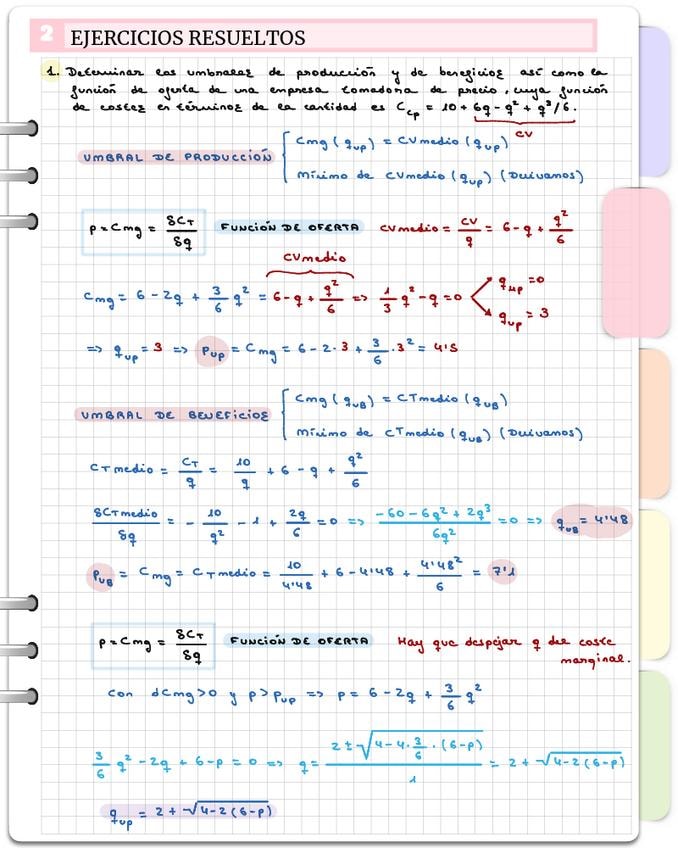 2 EJERCICIOS RESUELTOS
1. Determinar los umbrales de producción y de beneficios así como la
función de oferta de una empresa tomadora de precio, cuya función
de costes en términos de la cantidad es C_cp = 10 + 6q - q² + q³/6.
CV
UMBRAL DE PRODUCCIÓN { Cmg (q_up) = CVmedio (q_up)
Mínimo de CVmedio (q_up) (Derivamos)
p = Cmg = δC_T/δq FUNCIÓN DE OFERTA CVmedio = CV/q = 6 - q + q²/6
CVmedio
Cmg = 6 - 2q + 3/6 q² = 6 - q + q²/6 => 1/3 q² - q = 0 q_up = 0
q_up = 3
=> q_up = 3 => P_up = Cmg = 6 - 2·3 + 3/6·3² = 4'5
UMBRAL DE BENEFICIOS { Cmg (q_UB) = CTmedio (q_UB)
Mínimo de CTmedio (q_UB) (Derivamos)
CTmedio = C_T/q = 10/q + 6 - q + q²/6
δC_Tmedio/δq = - 10/q² - 1 + 2q/6 = 0 => -60 - 6q² + 2q³/6q² = 0 => q_UB = 4'48
P_UB = Cmg = C_Tmedio = 10/4'48 + 6 - 4'48 + 4'48²/6 = 7'1
p = Cmg = δC_T/δq FUNCIÓN DE OFERTA Hay que despejar q del coste
marginal.
Con dCmg>0 y p>P_up => p = 6 - 2q + 3/6 q²
3/6 q² - 2q + 6 - p = 0 => q = 2 ± √4 - 4·3/6·(6-p)/1 = 2 + √4 - 2(6-p)
q_up = 2 + √4 - 2(6-p)